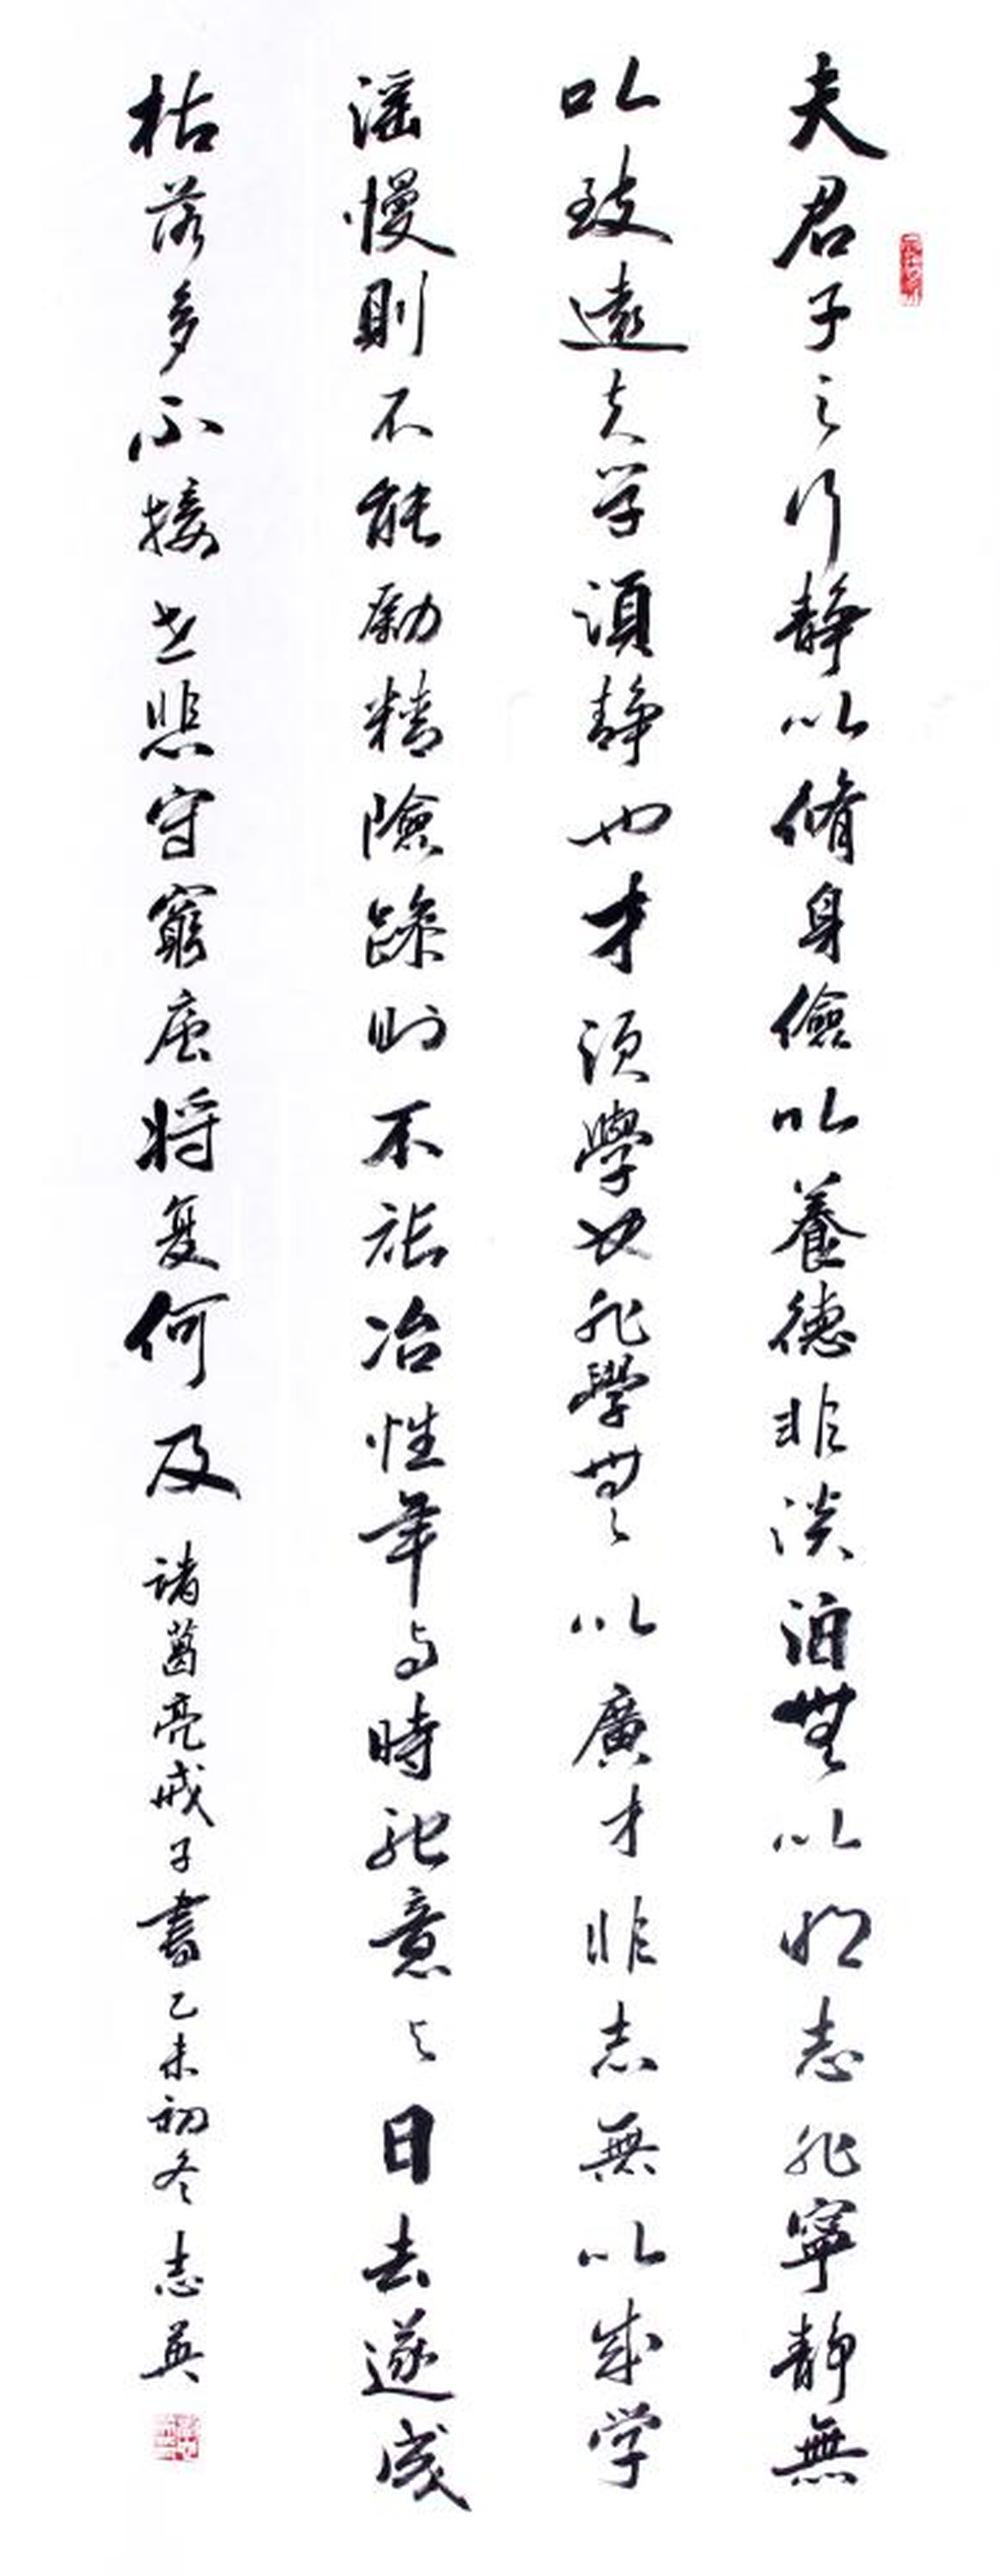 夫君子之行静以脩身儉以養德非淡泊無以明志非寧静無
以致遠夫学須静也才須學也非學無以廣才非志無以成学
滛慢則不能勵精險躁則不能冶性年与時馳意与日去遂成
枯落多不接世悲守窮廬将复何及 諸葛亮戒子書乙未初冬志英